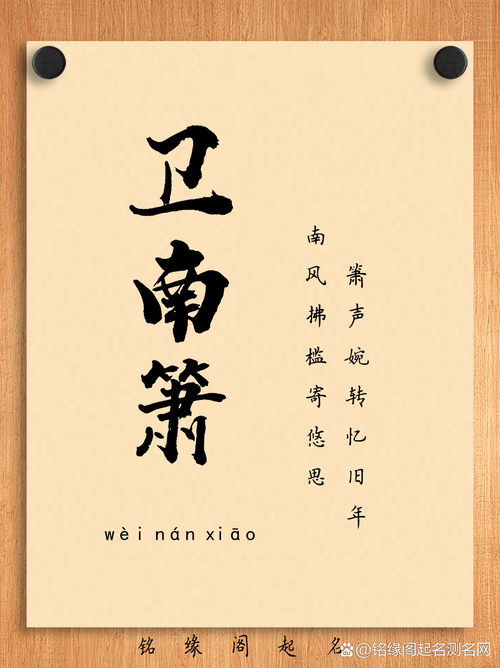 卫南箫
南风拂槛寄悠思
箫声婉转忆旧年
wèi nán xiāo
铭缘阁起名
铭缘阁起名测名网